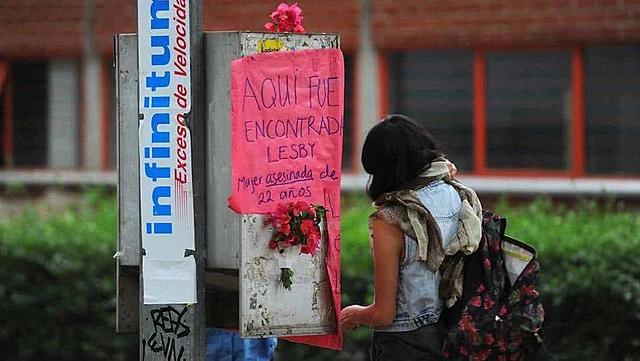 infinitum
Exceso de Velocidad
AQUÍ FUE
ENCONTRADA
LESBY
Mujer asesinada de
22 años